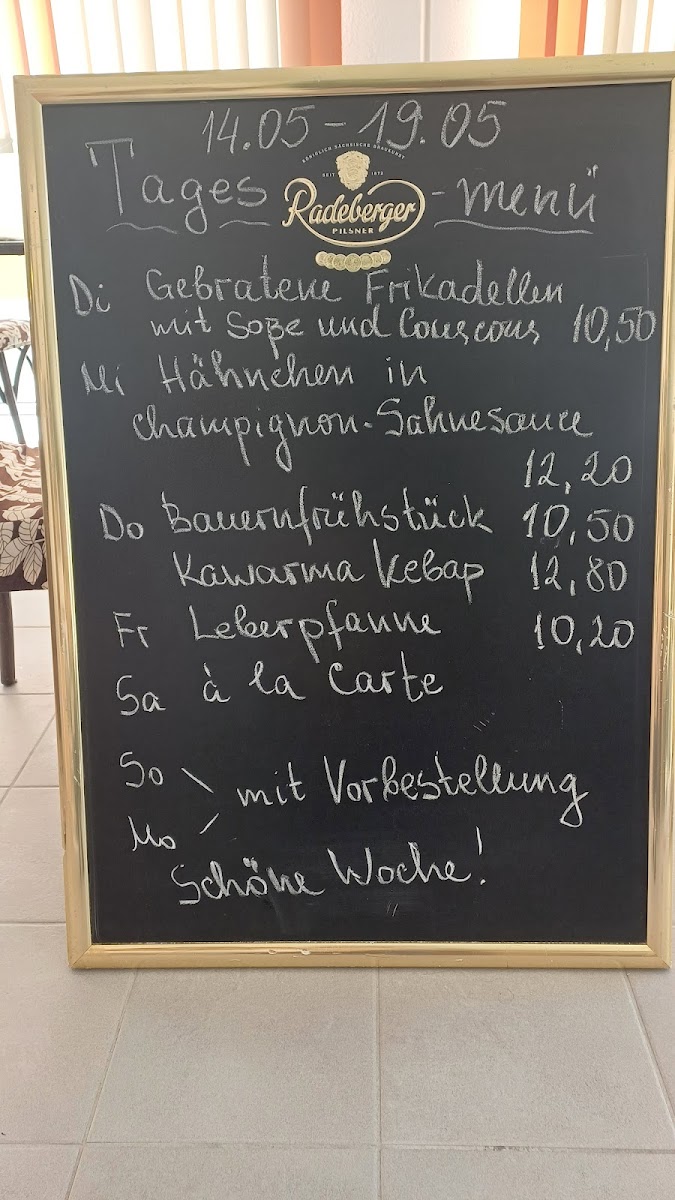 14.05 - 19.05
KÖNIGLICH SÄCHSISCHE BRAUKUNST
SEIT 1872
Tages - menü
Radeberger
PILSNER
Di Gebratene Frikadellen
mit Soße und Couscous 10,50
Mi Hähnchen in
Champignon-Sahnesauce
12,20
Do Bauernfrühstück 10,50
Kawarma Kebap 12,80
Fr Leberpfanne 10,20
Sa à la Carte
So
mit Vorbestellung
Mo
Schöne Woche!